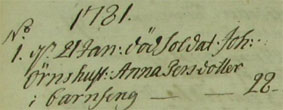 1781.
No
1. d. 21 Jan: död Soldat: Joh:
Örns hust: Anna Pers dotter
i barnseng — — 28-